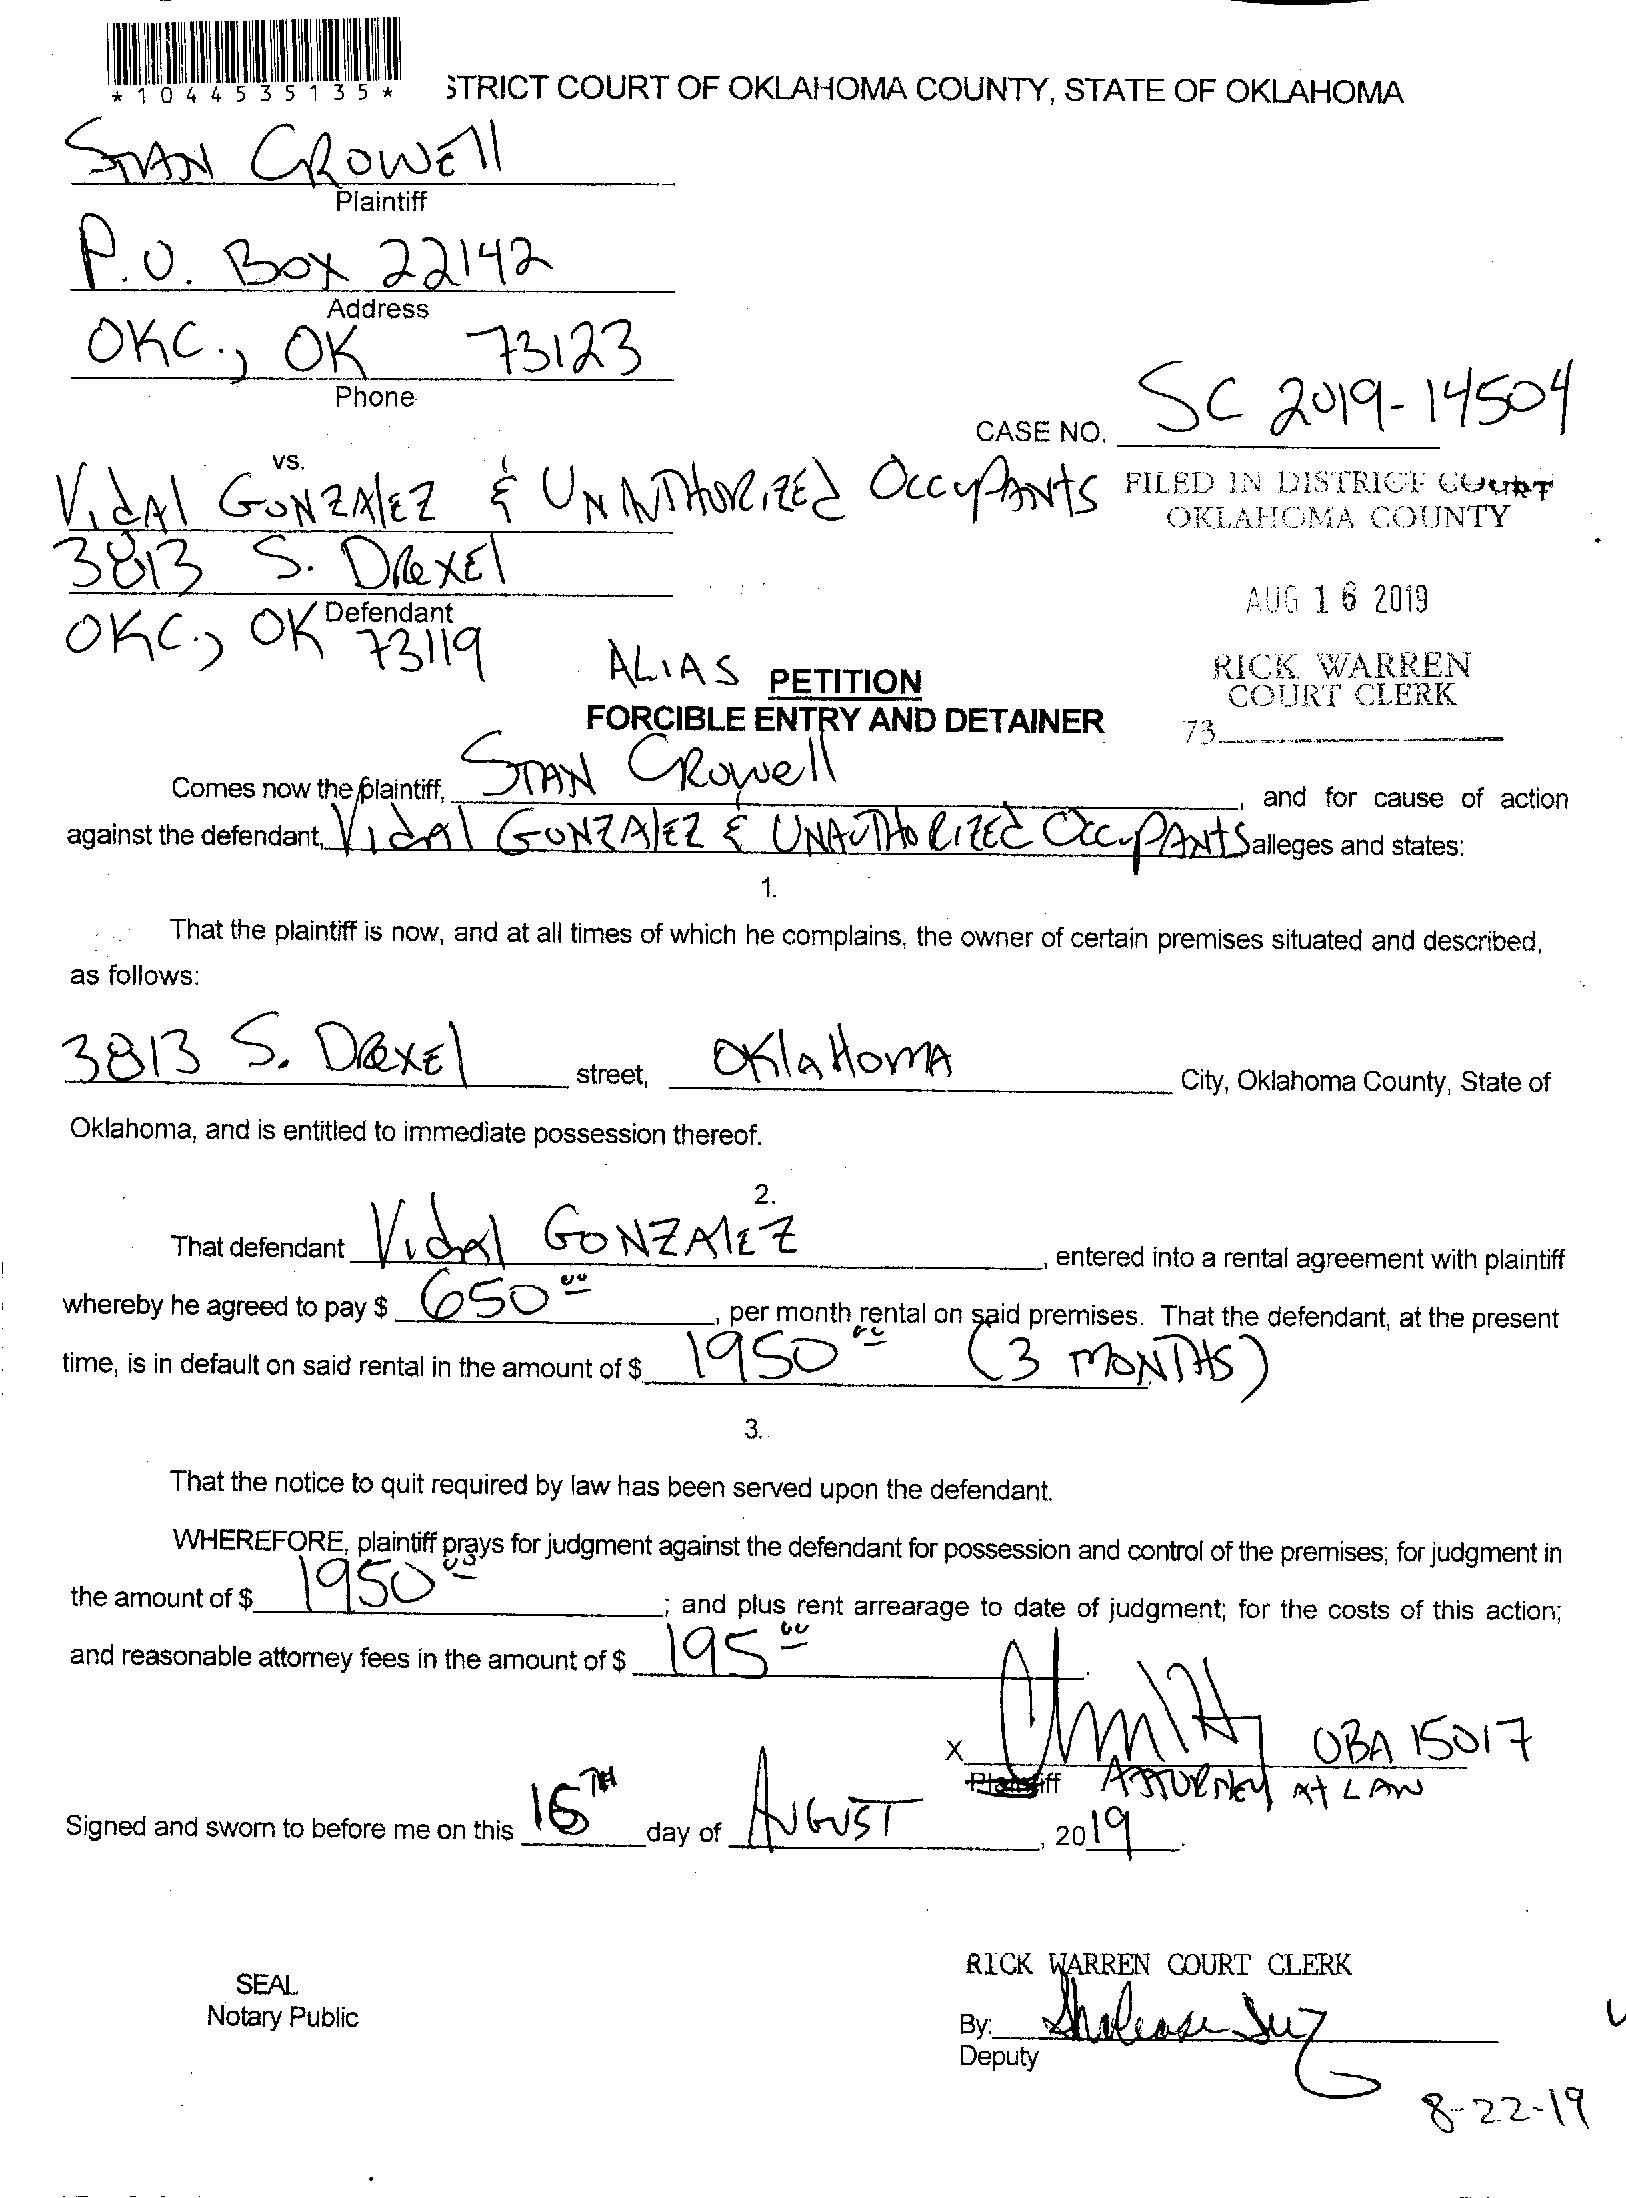 *1044535135*
STRICT COURT OF OKLAHOMA COUNTY, STATE OF OKLAHOMA
STAN CROWEll
Plaintiff
P.O. Box 22142
Address
OKC., OK 73123
Phone
CASE NO. SC 2019-14504
vs.
VidAl GONZAlEZ & UNAUTHORIZEd OccupANts
FILED IN DISTRICT COURT
OKLAHOMA COUNTY
3813 S. DREXEl
Defendant
AUG 16 2019
OKC., OK 73119
RICK WARREN
COURT CLERK
73
ALIAS PETITION
FORCIBLE ENTRY AND DETAINER
Comes now the plaintiff, STAN CROwell, and for cause of action
against the defendant, VidAl GONZAlEZ & UNAUTHORIZEd OccupANtS alleges and states:
1.
That the plaintiff is now, and at all times of which he complains, the owner of certain premises situated and described,
as follows:
3813 S. DREXEl street, OKlaHomA City, Oklahoma County, State of
Oklahoma, and is entitled to immediate possession thereof.
2.
That defendant VidAl GONZAlEZ, entered into a rental agreement with plaintiff
whereby he agreed to pay $ 650 00, per month rental on said premises. That the defendant, at the present
time, is in default on said rental in the amount of $ 1950 00 (3 MONTHS)
3.
That the notice to quit required by law has been served upon the defendant.
WHEREFORE, plaintiff prays for judgment against the defendant for possession and control of the premises; for judgment in
the amount of $ 1950 00; and plus rent arrearage to date of judgment; for the costs of this action;
and reasonable attorney fees in the amount of $ 195 00.
X OBA 15017
Plaintiff ATTORNEY At LAW
Signed and sworn to before me on this 16TH day of AUGUST, 2019.
RICK WARREN COURT CLERK
SEAL
Notary Public
By:
Deputy
8-22-19